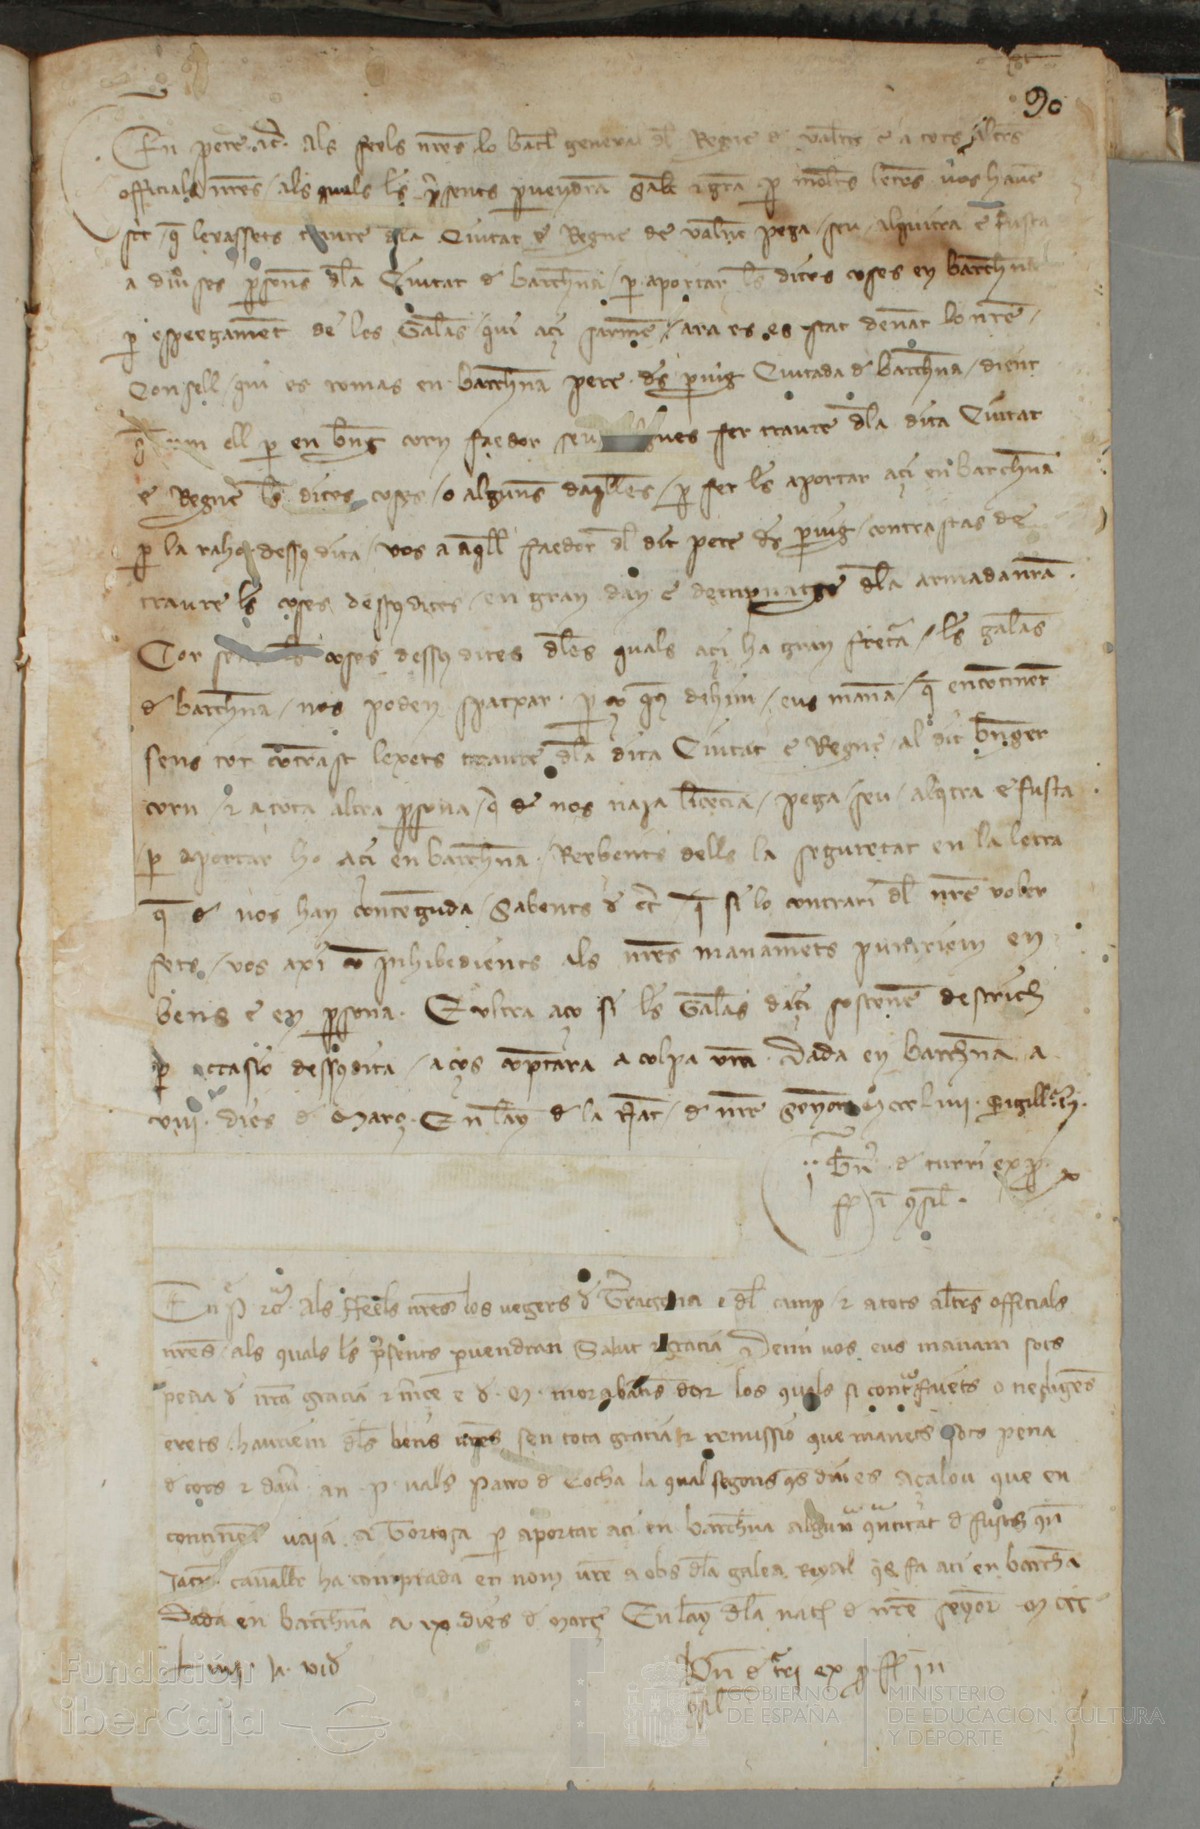 90
En pere. etc. Als feels nres lo batle general dl Regne d valne e a tots altres
officials nres / als quals ls presents pervendran Salut e gra. per moltes letres vos havem
scrit / q lexassets traure dla Ciutat e Regne de valne pega / seu / alquitra e fusta
a diverses persones dla Ciutat d barchna / per aportar ls dites coses en barchna
per espeegament de les Galeas / qui açi sarmen / ara es es stat denant lo nre
Consell / qui es romas en barchna pere des puig Ciutada d barchna / dient
q com ell per en bng corn faedor seu fer traure dla dita Ciutat
e Regne ls dites coses / o algunes daqlles / per fer ls aportar açi en barchna
per la raho dessus dita / vos a aqll faedor dl dit pere des puig / contrastas de
traure ls coses dessus dites / en gran dan e dampnatge dla armada nra.
Cor coses dessus dites dles quals açi ha gran freta / ls galeas
d barchna / nos poden spatxar. per ço us dehim / eus manam / q encontinent
sens tot contrast lexets traure dla dita Ciutat e Regne / al dit bnger
corn / e a tota altra persona / q de nos haja licencia / pega / seu / alqtra e fusta
per aportar ho açi en barchna / Reebents dells la seguretat en la letra
q d nos han contenguda / Sabents d cert / q si lo contrari dl nre voler
fets / vos axi com inhibedients als nres manaments puniriem en
bens e en persona. E ultra aço si ls Galeas daçi sostenen destrich
per occasio dessus dita / açus comptara a colpa vra. Dada en barchna a
xviii. dies d Març. En lany d la Nat / d nre Senyor Mcccliiii. Sigillat.
Bn. d turri ex p
ff i qsil.
En P. etc. Als feels nres los vegers d Tragona e dl camp / e a tots altres officials
nres / als quals ls presents pervendran Salut e gracia Deim vos eus manam sots
pena d nra gracia e merce e d. M. morabatins dor los quals si contrafaets o negligens
erets / hauriem dls bens vres sen tota gracia e remissio que manets sots pena
d cors e daver an. P. valls patro d Cocha la qual segons qs diu es açalou que en
continent vaja a Tortosa per aportar aci en barchna alguna quantitat d fusts qn
Jacme cavaller ha comprada en nom nre a obs dla galea Reyal qs fa aci en barchna
Dada en barchna a xx dies d Març En lany dla nat d nre senyor Mccc
Liiii. a. vid
Bn d tri ex p ff in
qsil
Fundación
iberCaja
GOBIERNO
DE ESPAÑA
MINISTERIO
DE EDUCACIÓN, CULTURA
Y DEPORTE